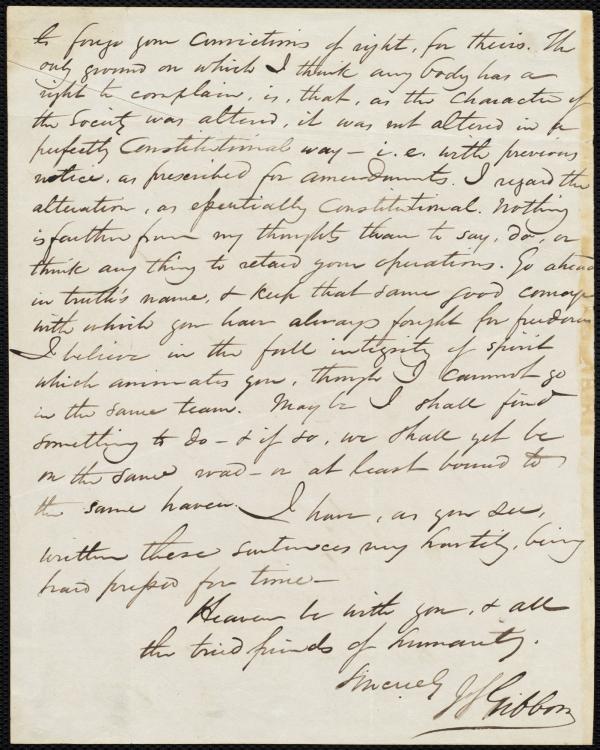 to forego your convictions of right, for theirs. The
only ground on which I think any body has a
right to complain, is, that, as the character of
the Society was altered, it was not altered in a
perfectly Constitutional way - i.e. with previous
notice, as prescribed for amendments. I regard the
alteration, as essentially Constitutional. Nothing
is farther from my thoughts than to say, do, or
think any thing to retard your operations. Go ahead
in truth's name, & keep that same good courage
with which you have always fought for freedom
I believe in the full integrity of spirit
which animates you, though I cannot go
in the same team. Maybe I shall find
something to do - & if so, we shall yet be
on the same road - or at least bound to
the same haven. I have, as you see,
written these sentences very hastily, being
hard pressed for time -
Heaven be with you, & all
the tried friends of humanity.
Sincerely J S Gibbons